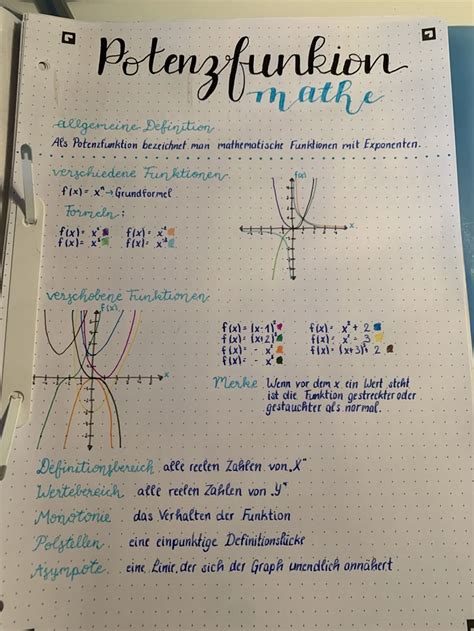 Potenzfunkion
mathe
allgemeine Definition
Als Potenzfunktion bezeichnet man mathematische Funktionen mit Exponenten.
verschiedene Funktionen
f(x) = xⁿ → Grundformel
Formeln:
f(x) = f(x) =
f(x) = f(x) =
f(x)
x
verschobene Funktionen
f(x)
x
f(x) = (x-1)² f(x) = x² + 2
f(x) = (x+2)² f(x) = x² - 3
f(x) = - x² f(x) = (x+3)² 2
f(x) = - x
Merke Wenn vor dem x ein Wert steht
ist die Funktion gestreckter oder
gestauchter als normal.
Definitionsbereich alle reelen Zahlen von „X"
Wertebereich alle reelen Zahlen von „Y"
Monotonie das Verhalten der Funktion
Polstellen eine einpunktige Definitionslücke
Asympote eine Linie, der sich der Graph unendlich annähert